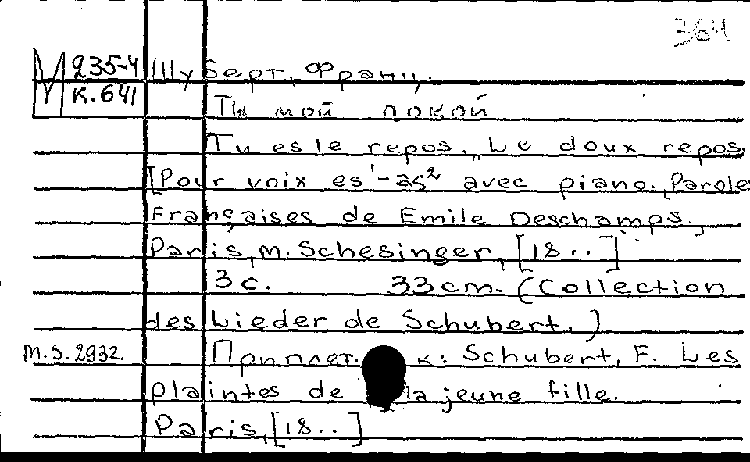 364
М 235-4 Шуберт, Франц.
к. 641
Ты мой покой
Tu es le repos, Le doux repos
[Pour voix es'-as² avec piano. Parole
Françaises de Emile Deschamps.
Paris, M. Schesinger, [18..]
3 с. 33 cm. (Collection
des Lieder de Schubert.)
M.S. 2932. Приплет. к: Schubert, F. Les
plaintes de la jeune fille.
Paris, [18..]